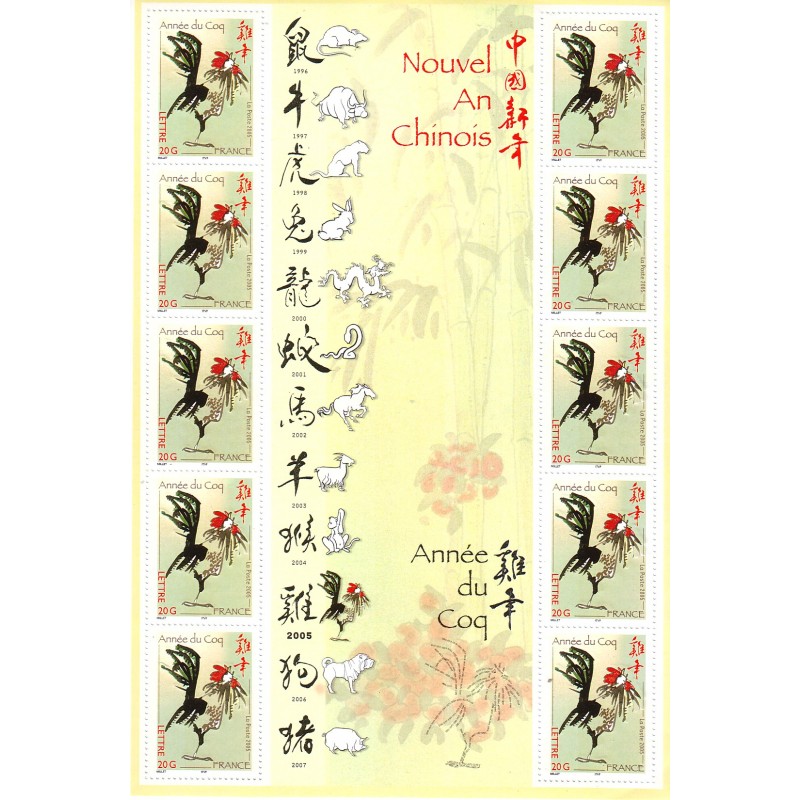 Année du Coq
雞年
LETTRE
20G
FRANCE
La Poste 2005
Année du Coq
雞年
LETTRE
20G
FRANCE
La Poste 2005
Année du Coq
雞年
LETTRE
20G
FRANCE
La Poste 2005
Année du Coq
雞年
LETTRE
20G
FRANCE
La Poste 2005
Année du Coq
雞年
LETTRE
20G
FRANCE
La Poste 2005
鼠
1996
牛
1997
虎
1998
兔
1999
龍
2000
蛇
2001
馬
2002
羊
2003
猴
2004
雞
2005
狗
2006
猪
2007
Nouvel
An
Chinois
中國新年
Année
du
Coq
雞年
Année du Coq
雞年
LETTRE
20G
FRANCE
La Poste 2005
Année du Coq
雞年
LETTRE
20G
FRANCE
La Poste 2005
Année du Coq
雞年
LETTRE
20G
FRANCE
La Poste 2005
Année du Coq
雞年
LETTRE
20G
FRANCE
La Poste 2005
Année du Coq
雞年
LETTRE
20G
FRANCE
La Poste 2005